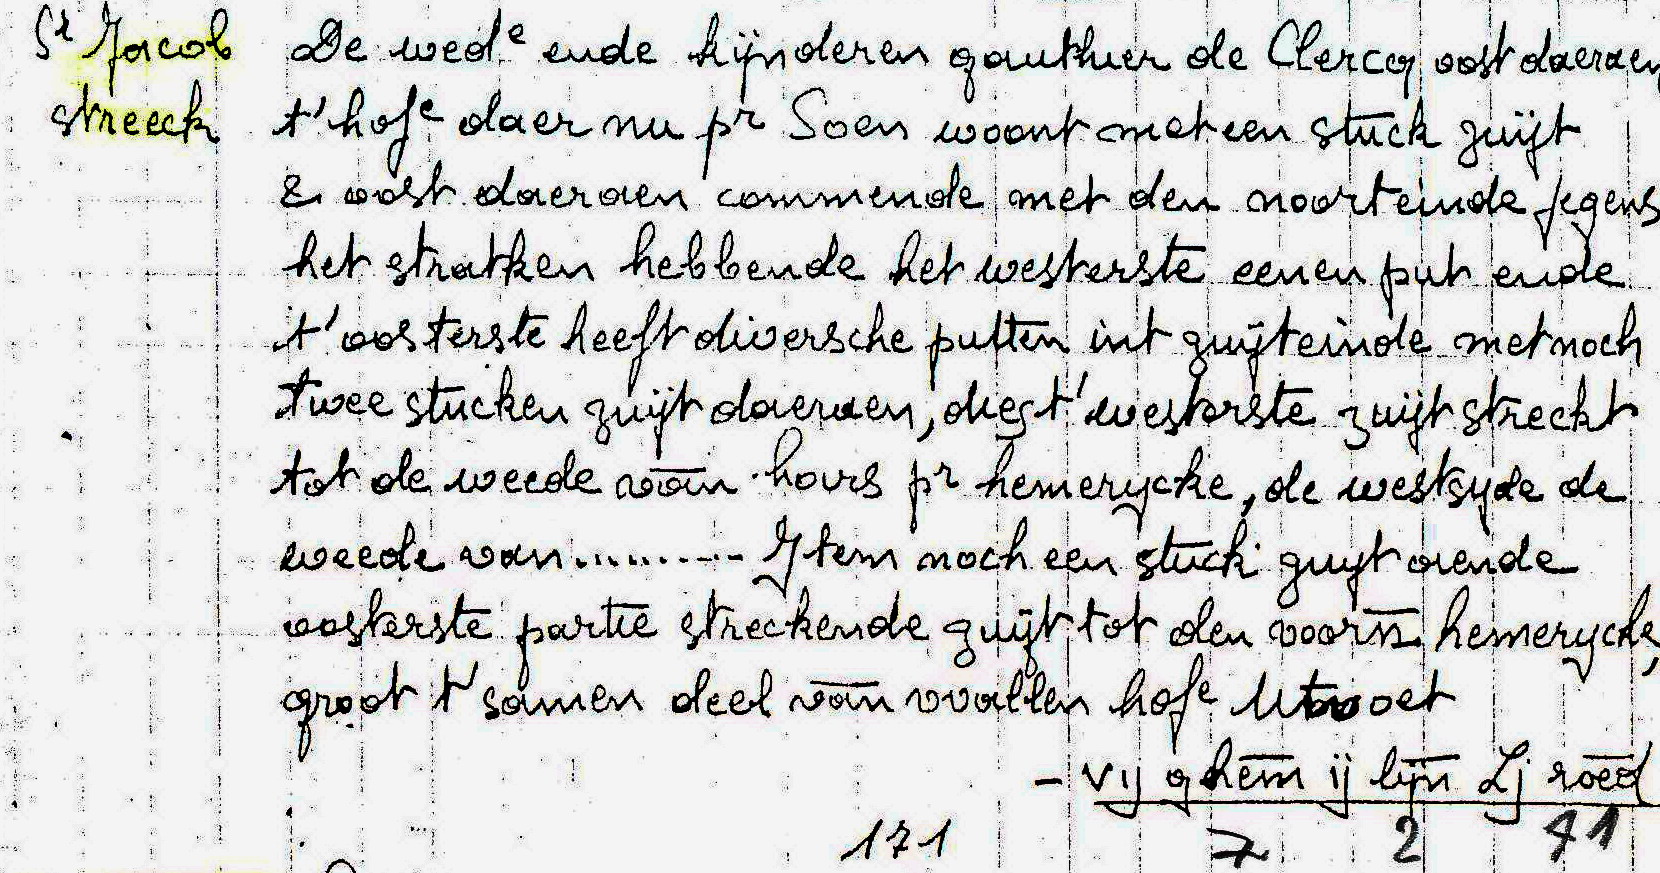 St Jacob De wede ende kijnderen gauthier de Clercq oost daeraen
streeck t'hofe daer nu pr Soen woont met een stuck zuijt
& oost daeraen commende met den noorteinde jegens
het stratken hebbende het westerste eenen put ende
t'oosterste heeft diversche putten int zuijteinde met noch
twee stucken zuijt daeraen, dies t'westerste zuijt streckt
tot de weede van hoirs pr hemerycke, de westsyde de
weede van.......... Item noch een stuck zuyt aende
oosterste partie streckende zuijt tot den voorn hemerycke,
groot t'samen deel van vvallen hofe
- vij ghem ij lijn Lj roed
171 7 2 41